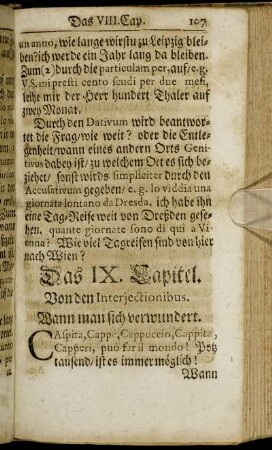 Das VIII. Cap. 107
un anno, wie lange wirstu zu Leipzig blei-
ben? ich werde ein Jahr lang da bleiben.
Zum (2) durch die particulam per, auf / e. g.
V. S. mi presti cento scudi per due mesi,
leihe mir der Herr hundert Thaler auf
zwey Monat.
Durch den Dativum wird beantwor-
tet die Frag / wie weit? oder die Entle-
genheit / wann eines andern Orts Geni-
tivus dabey ist / zu welchem Ort es sich be-
ziehet / sonst wirds simpliciter durch den
Accusativum gegeben / e. g. Io viddia una
giornata lontano da Dresda, ich habe ihn
eine Tag-Reise weit von Dreßden gese-
hen. quante giornate sono di qui a Vi-
enna? Wie viel Tagreisen sind von hier
nach Wien?
Das IX. Capitel.
Von den Interjectionibus.
Wann man sich verwundert.
CAspita, Cappe, Cappuccio, Cappita,
Capperi, può far il mondo! Potz
tausend / ist es immer möglich!
Wann